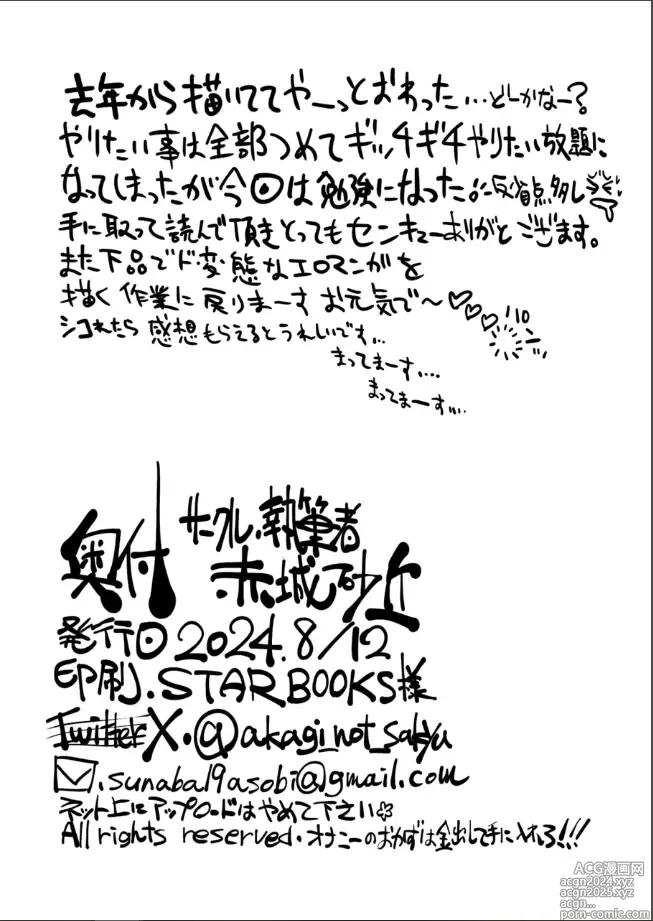 去年から描いててやーっとおわった…どしかなー?
やりたい事は全部つめてギッチギチやりたい放題に
なってしまったが今回は勉強になった。に反省点多し
手に取って読んで頂きとってもセンキューありがとござます。
また下品でド変態なエロマンガを
描く作業に戻りまーす お元気で〜♡♡♡
シコれたら感想もらえるとうれしいです…
まってまーす、…
まってまーす…
奥付
サークル.執筆者
赤城砂丘
発行日 2024.8/12
印刷.STAR BOOKS様
Twitter X.@akagi_not_sakyu
.sunaba19asobi@gmail.com
ネット上にアップロードはやめて下さい
All rights reserved.オナニーのおかずは金出して手に入れろ!!!
ACG漫画网
acgn2024.xyz
acgn2025.xyz
acgn...
porn-comic.com